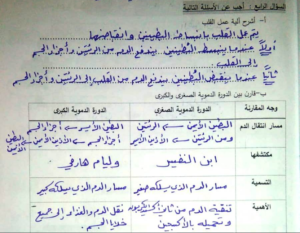 السؤال الرابع : أجب عن الأسئلة التالية
أ- اشرح آلية عمل القلب
يتم عمل القلب بانبساط البطينين وانقباضهما
أولاً عندما ينبسط البطينين يندفع الدم من الرئتين وأجزاء الجسم
إلى القلب
ثانياً عندما ينقبض البطينين يندفع الدم من القلب إلى الرئتين وأجزاء الجسم
ب- قارن بين الدورة الدموية الصغرى والكبرى
وجه المقارنة الدورة الدموية الصغرى الدورة الدموية الكبرى
مسار انتقال الدم البطين الأيمن الرئتين البطين الأيسر أجزاء الجسم
ومن الرئتين الأذين الأيسر
مكتشفها ابن النفيس وليام هارفي
التسمية مسار الدم الذي يسلكه صغير مسار الدم الذي يسلكه كبير
الأهمية تنقية الدم من ثاني أكسيد الكربون نقل الدم والغذاء إلى جميع
وتحميله بالأكسجين خلايا الجسم